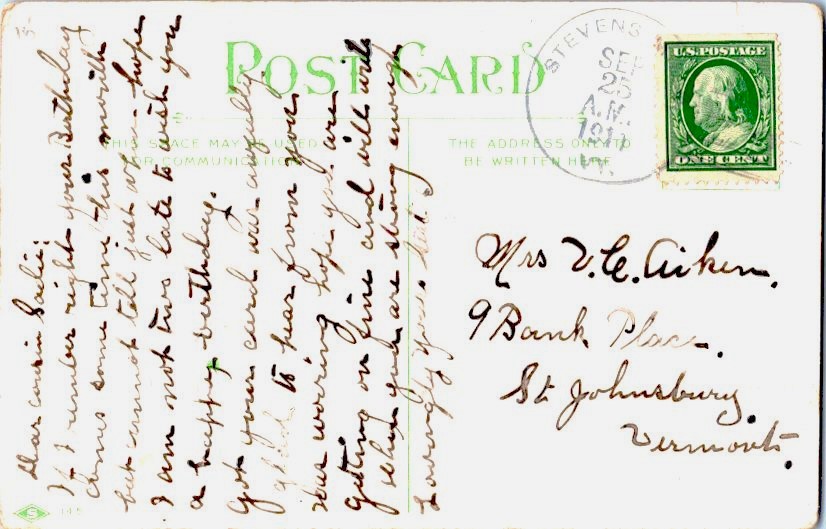 POST CARD
THIS SPACE MAY BE USED
FOR COMMUNICATION
THE ADDRESS ONLY TO
BE WRITTEN HERE
STEVENS
SEP
25
A.M.
1911
VT.
U.S. POSTAGE
ONE CENT
Mrs V. C. Aiken.
9 Bank Place.
St Johnsbury.
Vermont.
Dear cousin Sadie:
If I rember right your Birthday
comes some time this month
but cannot tell just when - hope
I am not two late to wish you
a happy birthday.
Got your card was awfully
glad to hear from you,
was woring hope you are
geting on fine and will write
when you are strong enough
Lovingly yours
S